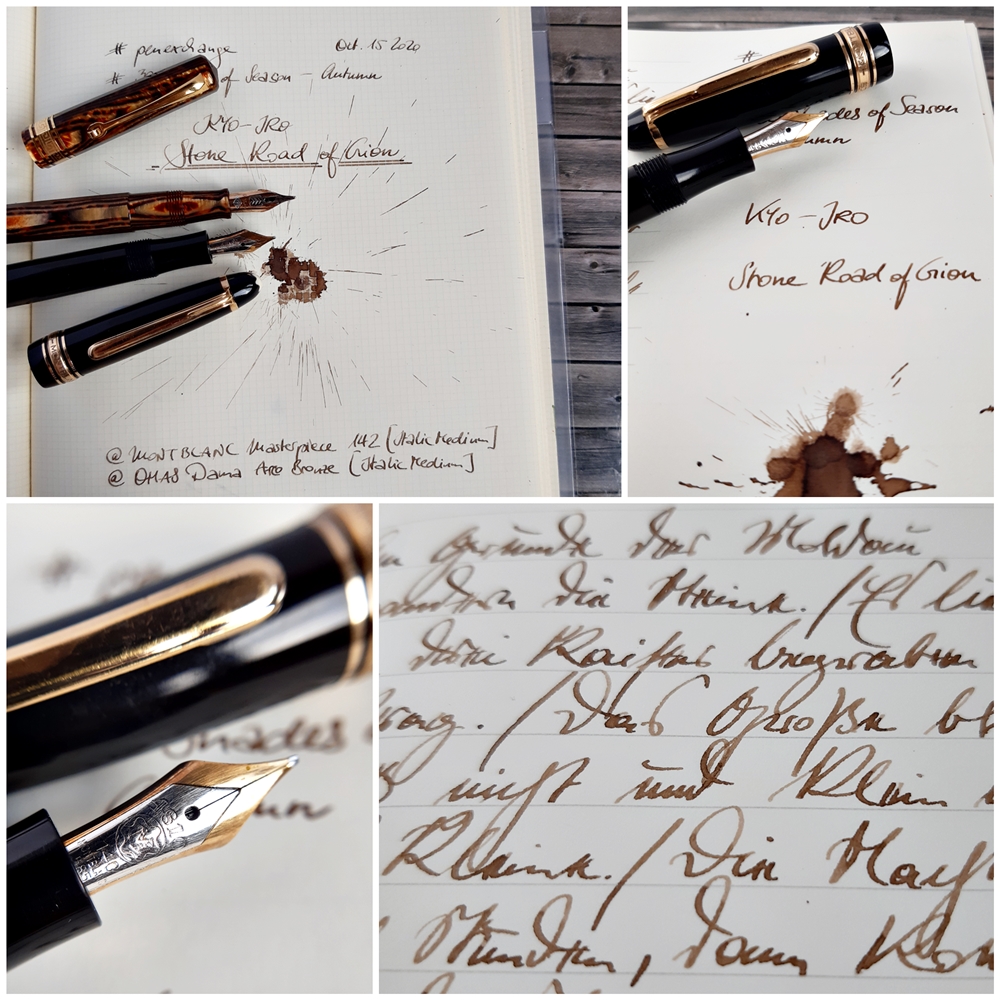 # penexchange
Oct. 15 2020
# of Season – Autumn
KYO-IRO
Stone Road of Gion
@ MONTBLANC Masterpiece 142 [Italic Medium]
@ OMAS Dama Arco Bronze [Italic Medium]
#
of Season
KYO-IRO
Stone Road of Gion
Shades
Grunde der Moldau
die Steine. / Es
drei Kaiser begraben
Prag. / Das Große
nicht und Klein
Kleine. / Die
Stunden, dann